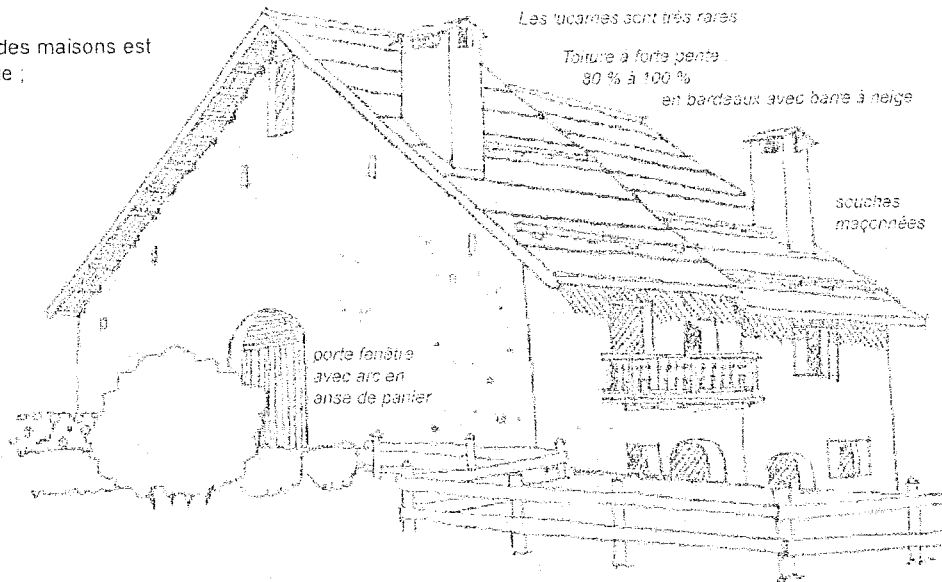 des maisons est
e ;
Les lucarnes sont très rares
Toiture à forte pente :
80 % à 100 %
en bardeaux avec barre à neige
souches
maçonnées
porte fenêtre
avec arc en
anse de panier